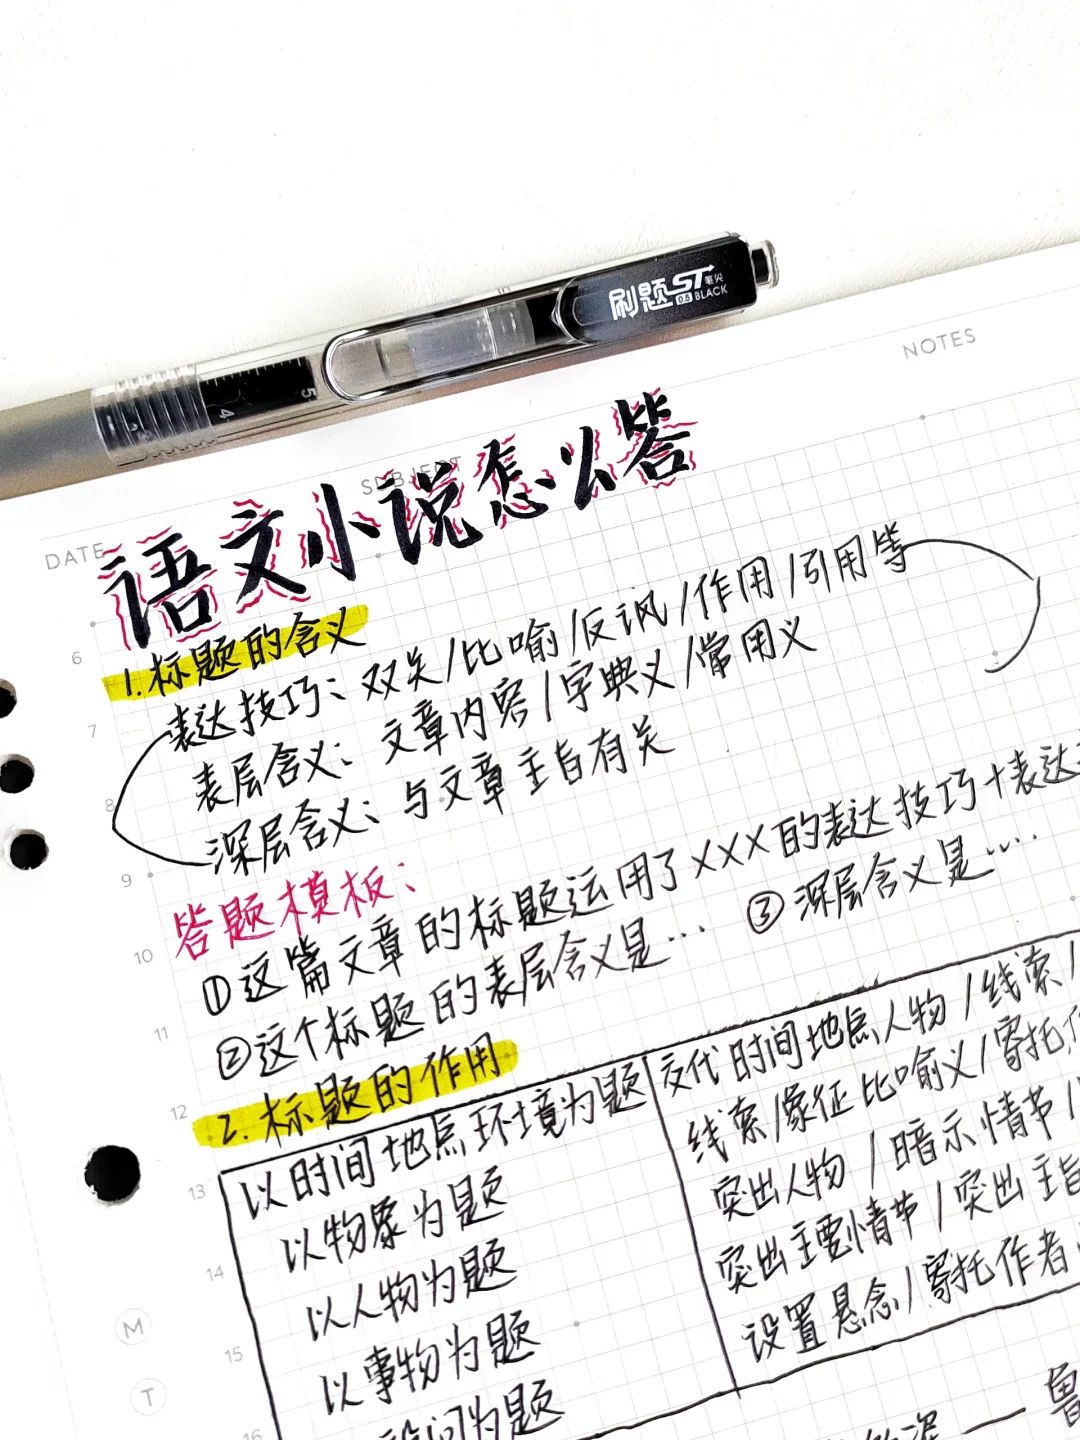 刷题ST
0.5 BLACK
5
4
NOTES
DATE
SUBJECT
语文小说怎么答
6
1.标题的含义
表达技巧：双关/比喻/反讽/作用/引用等
7
表层含义：文章内容/字典义/常用义
8
深层含义：与文章主旨有关
9
答题模板：
10
①这篇文章的标题运用了XXX的表达技巧+表达
11
②这个标题的表层含义是… ③深层含义是……
12
2.标题的作用
13
以时间地点环境为题 交代时间地点人物/线索/
以物象为题 线索/象征比喻义/寄托
14
以人物为题 突出人物/暗示情节/
15
以事物为题 突出主要情节/突出主旨
设问为题 设置悬念/寄托作者
M
T
16
鲁